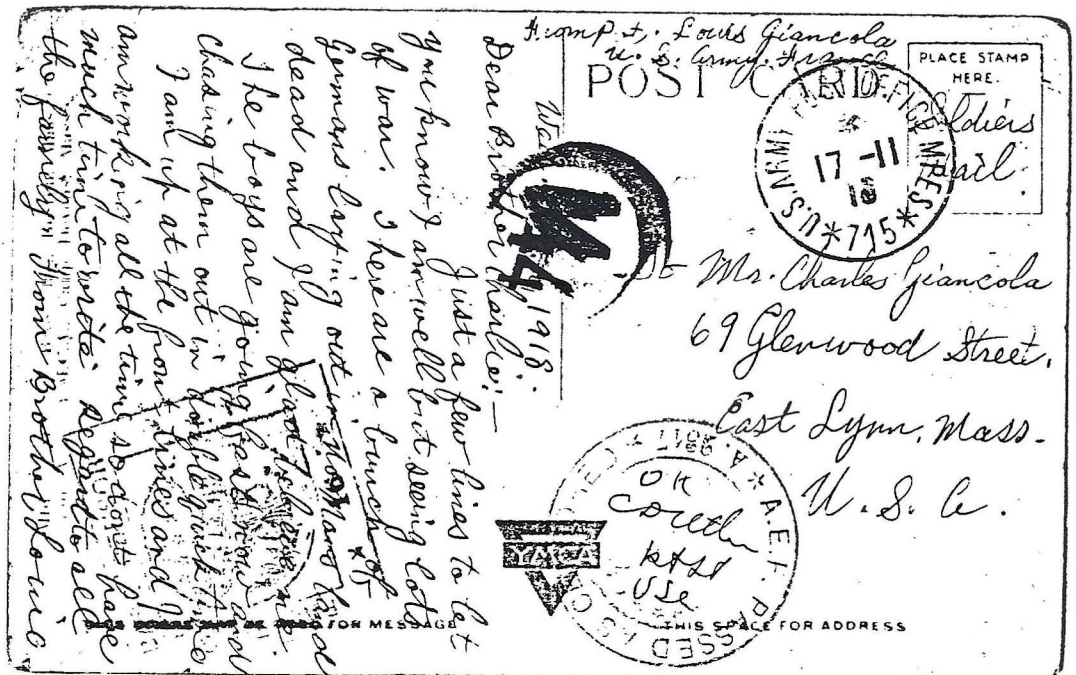 From Pvt. Louis Giancola
U.S. Army. France
POST CARD
PLACE STAMP
HERE.
Soldiers
Mail.
U.S. ARMY
17-11
18
*715*
Mr. Charles Giancola
69 Glenwood Street.
East Lynn, Mass.
U.S.A.
THIS SPACE FOR ADDRESS
A.E.F. PASSED AS CENSORED
OK
USA
YMCA
1918.
Dear Brother Charlie:—
Just a few lines to let
you know I am well but seeing lots
of war. There are a bunch of
Germans laying out in No Mans land
dead and I am glad
The boys are going fast now and
chasing them out in double quick time
I am up at the front lines and I
am working all the time so dont have
much time to write regards to all
the family From Brother Louis
FOR MESSAGE